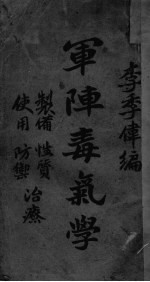 李季偉編
軍陣毒氣學
製備 性質
使用 防禦 治療